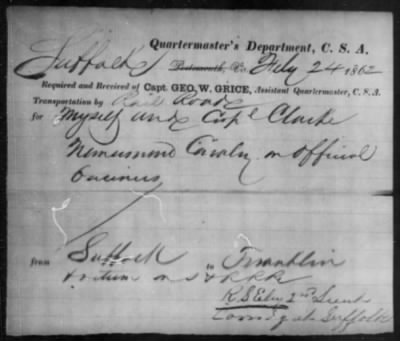 Quartermaster's Department, C. S. A.
Suffolk Portsmouth, Va. Feby 24 1862
Required and Received of Capt. GEO. W. GRICE, Assistant Quartermaster, C. S. A.
Transportation by Rail Road
for Myself and Capt Clarke
Nansemond Cavalry on official
from Suffolk to Franklin
& return on S & R R R
2nd Lieut
Comdg at Suffolk